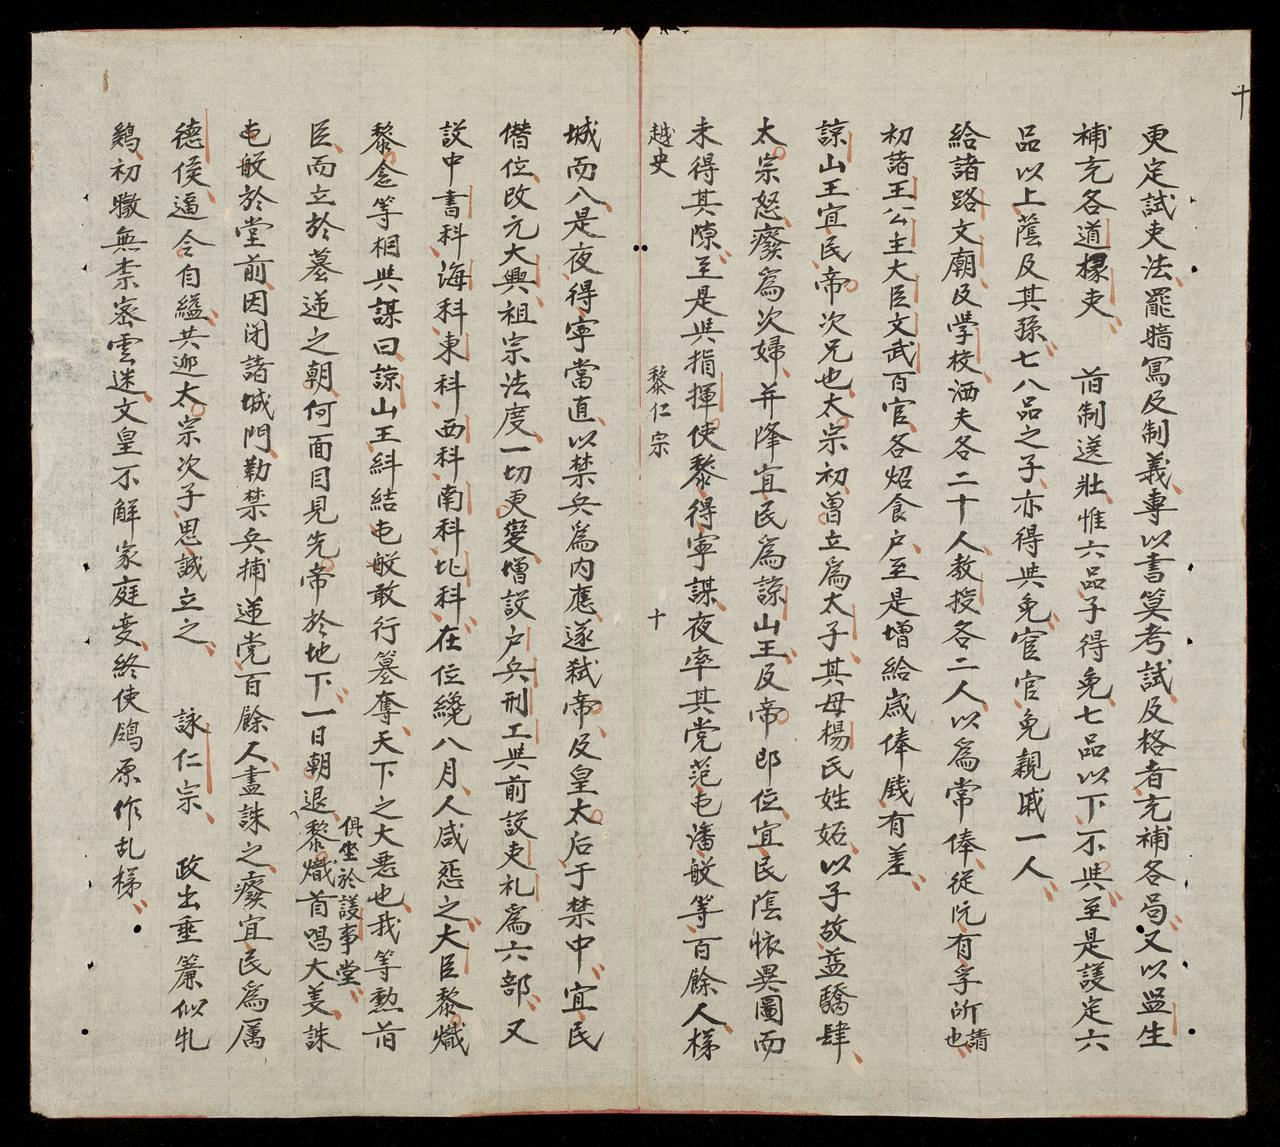 十
更定試吏法罷暗寫及制義專以書筭考試及格者充補各局又以監生
補充各道掾吏 旧制選壯惟六品子得免七品以下不與至是議定六
品以上蔭及其孫七八品之子亦得與免宦官免親戚一人
給諸路文廟及学校洒夫各二十人教授各二人以為常俸從阮有孚所請也
初諸王公主大臣文武百官各炤食户至是增給歲俸戔有差
諒山王宜民帝次兄也太宗初曽立為太子其母楊氏姓妬以子故益驕肆
太宗怒癈為次婦并降宜民為諒山王及帝即位宜民陰懷異圖而
未得其隙至是與指揮使黎得寧謀夜率其党范屯潘般等百餘人梯
越史 黎仁宗 十
城而入是夜得寧當直以禁兵為内應遂弑帝及皇太后于禁中宜民
僭位改元大興祖宗法度一切更變增設户兵刑工與前設吏礼為六部又
設中書科海科東科西科南科北科在位纔八月人咸怨之大臣黎熾
黎念等相與謀曰諒山王糾結屯般敢行簒奪天下之大悪也我等勲旧
臣而立於簒逆之朝何面目見先帝於地下一日朝退俱坐於議事堂黎熾首唱大義誅
屯般於堂前因闭諸城門勒禁兵捕逆党百餘人盡誅之癈宜民為厲
德侯逼令自縊共迎太宗次子思誠立之 詠仁宗 政出垂簾似牝
鷄初曒無柰密雲迷文皇不解家庭变終使鴒原作乱梯